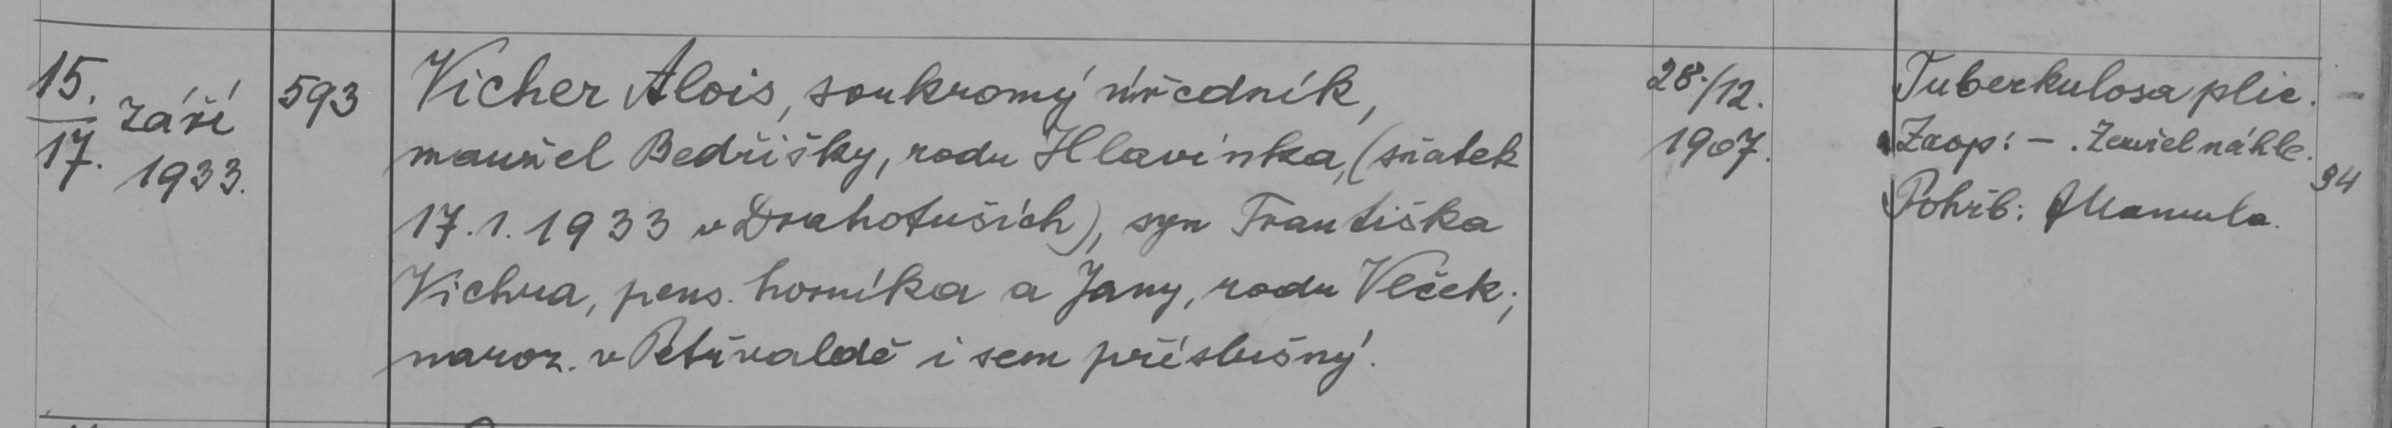 15. září 593 Vicher Alois, soukromý úředník, 28./12. Tuberkulosa plic.
17. 1933. manžel Bedřišky, rodu Hlavinka, (sňatek 1907. Zaop: - . Zemřel náhle.
17. 1. 1933 v Drahotuších), syn Františka Pohřb: Mamula. 34
Vichra, pens. horníka a Jany, rodu Vlček;
naroz. v Petřvaldě i sem příslušný.